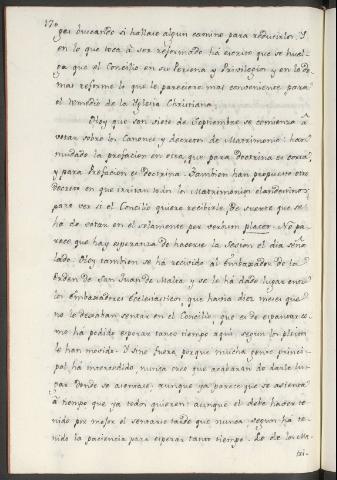 170
ger buscando si hallase algun camino para reducirlos. Y
en lo que toca à ser reformado hà escrito que se huel-
ga que el Concilio en su Persona y Privilegios y en lo de-
mas reforme lo que le pareciere mas conveniente para
el remedio de la Yglesia Christiana.
Oloy que son siete de Septiembre se comienza à
votar sobre los Canones y decretos de Matrimonio: han
mudado la prefacion en otra, que para Doctrina es corta,
y para Prefacion es Doctrina. Tambien han propuesto otro
decreto en que irritan todos los Matrimonios clandestinos;
para ver si el Concilio quiere recibirle, De suerte que se
hà de votar en el solamente por verbum placet. No pa-
rece que hay esperanza de hacerse la Sesion el dia seña-
lado. Oloy tambien se hà recivido al Embaxador de la
Orden de San Juan de Malta y se le hà dado lugar entre
los Embaxadores Eclesiasticos, que havia diez meses que
no le dexaban sentar en el Concilio, que es de espantar co-
mo hà podido esperar tanto tiempo aqui, segun los pleitos
le han movido. Y sino fuera porque mucha gente princi-
pal hà intercedido, nunca creo que acabaran de darle lu-
gar donde se asentase, aunque ya parece que se asienta
à tiempo que ya todos quieren aunque el debe haber te-
nido por mejor el sentarse tarde que nunca, segun hà te-
nido la paciencia para esperar tanto tiempo. Lo de los Ma-
tri-